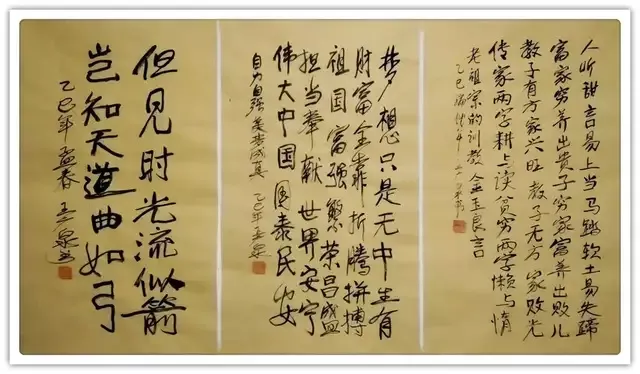 人听甜言易上当马踏软土易失蹄
富家穷养出贵子穷家富养出败儿
教子有方家兴旺教子无方家败光
传家两字耕与读贫穷两字懒与惰
老祖宗的训教金玉良言
乙巳
梦想只是无中生有
财富全靠折腾拼搏
祖国富强繁荣昌盛
担当奉献世界安宁
伟大中国国泰民安
自力自强美梦成真 乙巳年王泉
但见时光流似箭
岂知天道曲如弓
乙巳年孟春 王泉